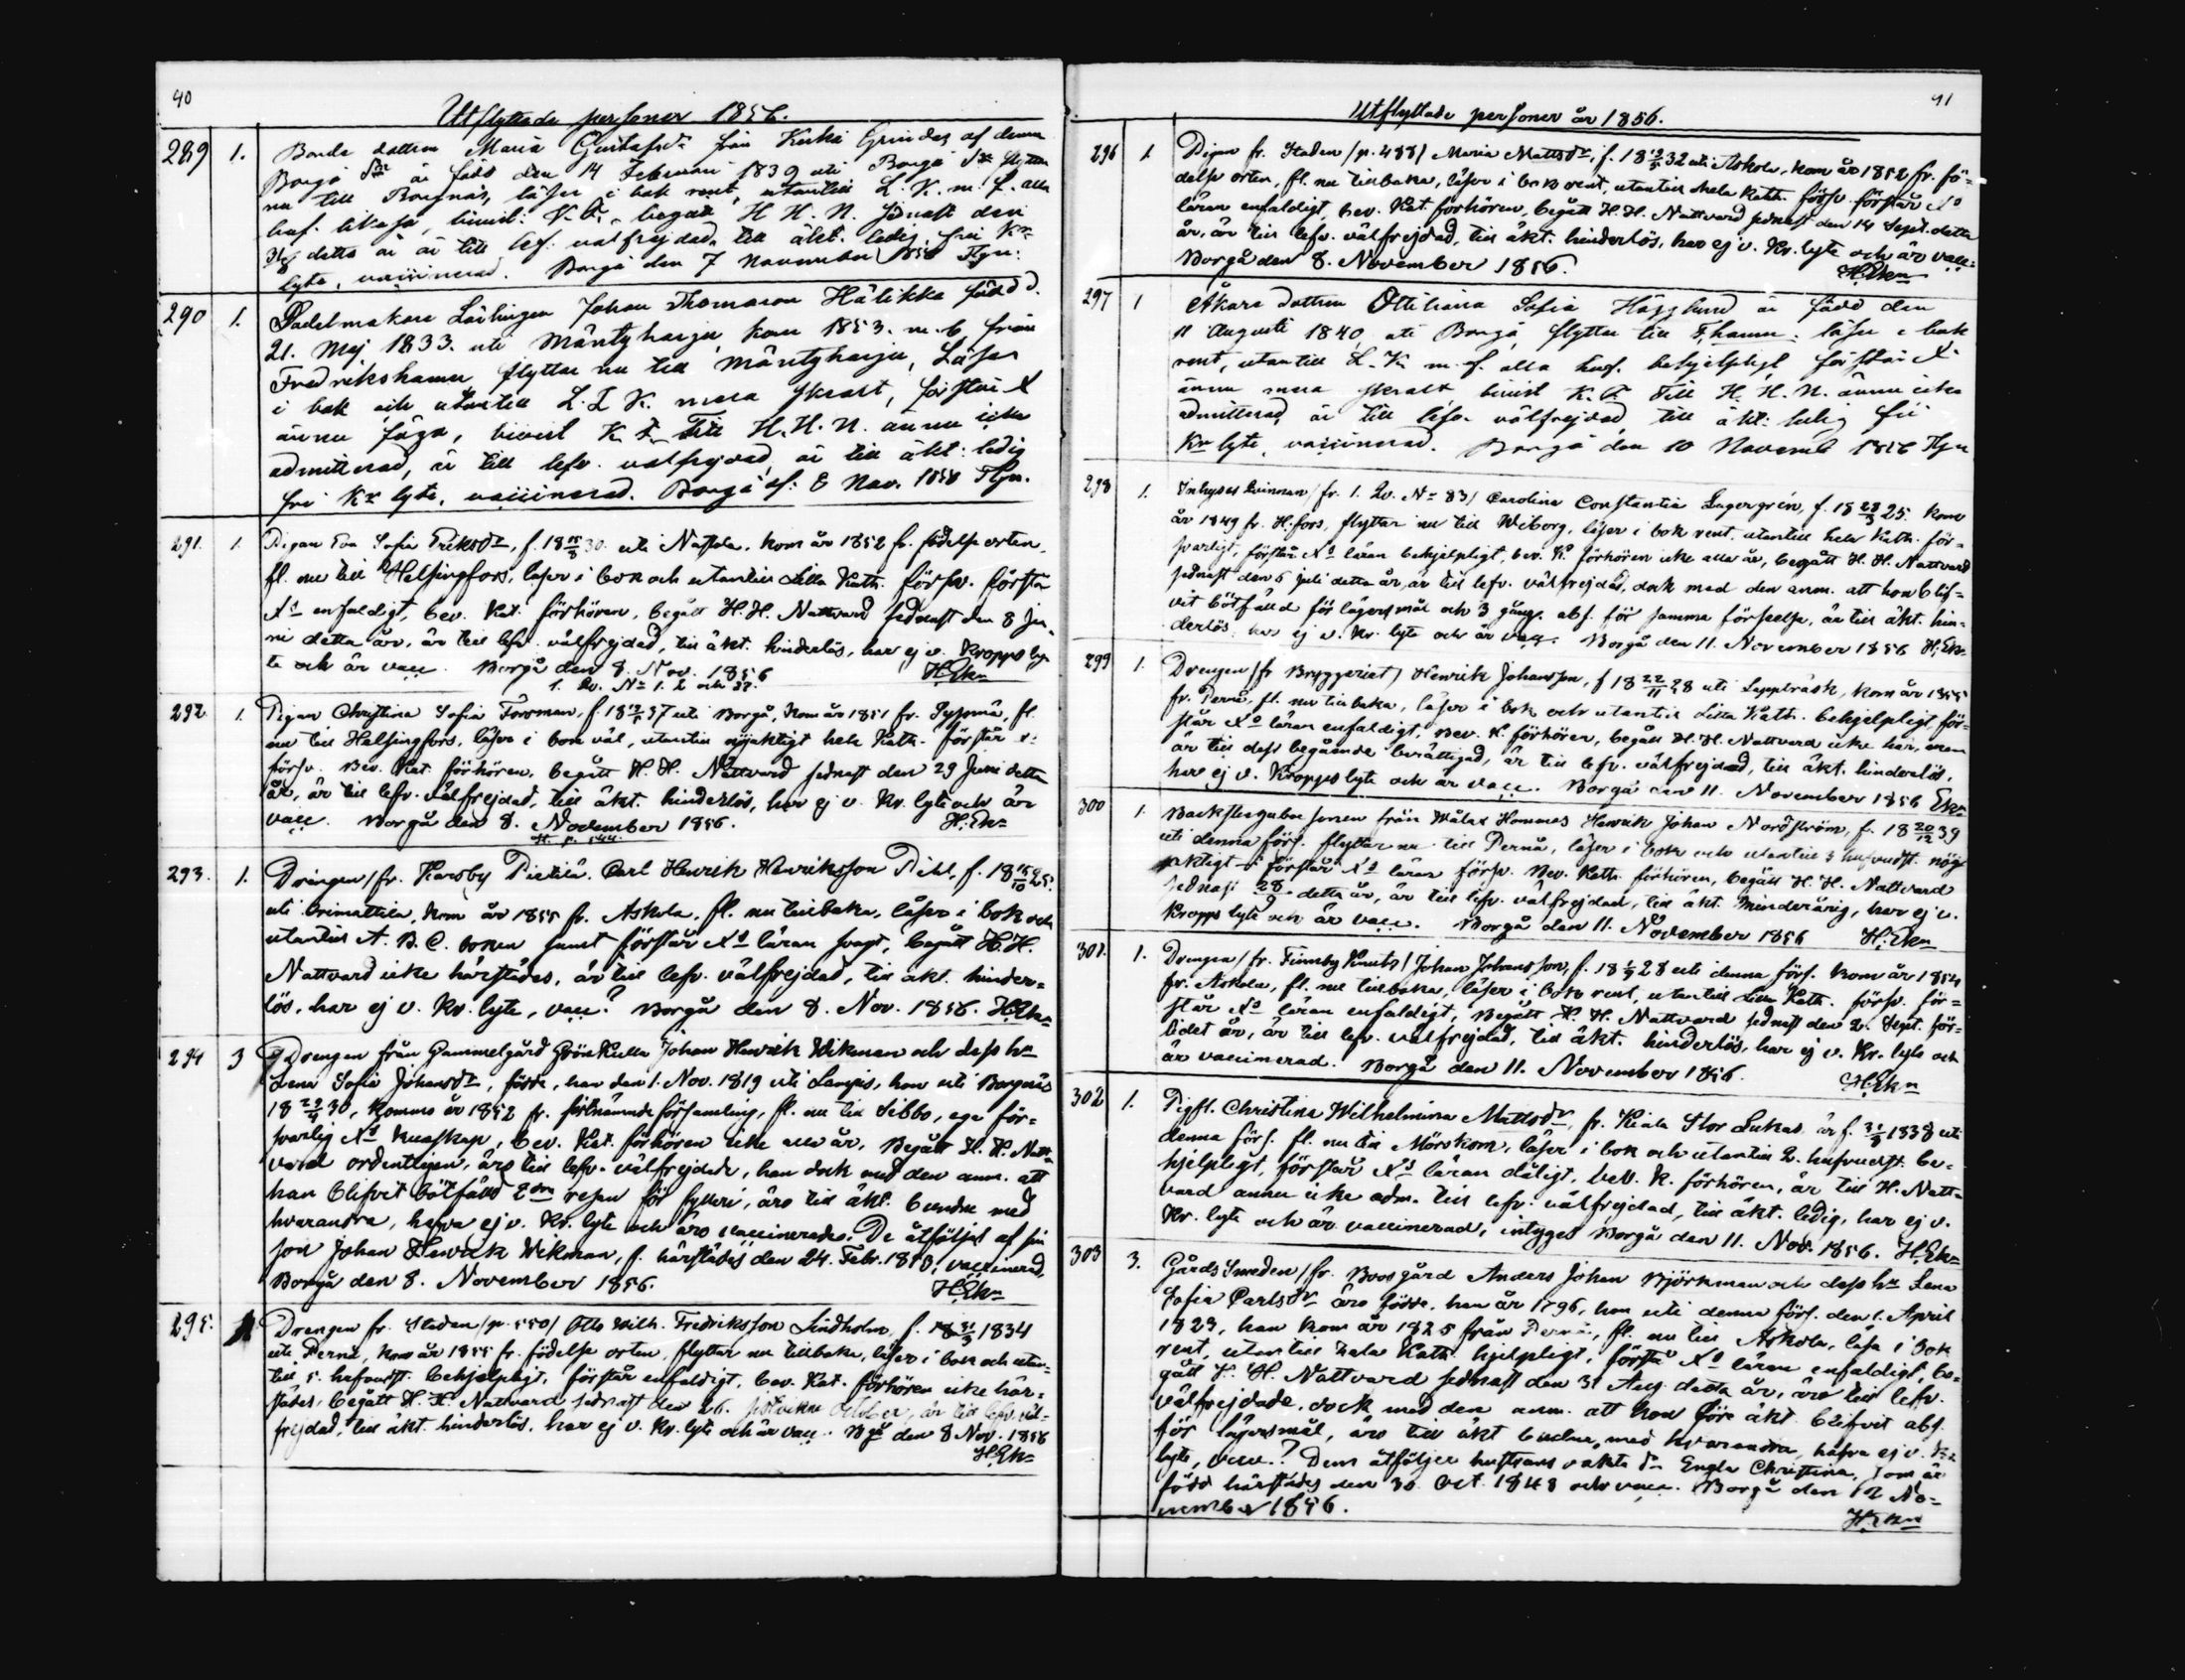 40
Utflyttade personer 1856.
289 1. Bonde dottren Maria Gustafsdr från Kerko Grindas af denna
Borgå Sn är född den 14 Februari 1839 uti Borgå Sn flyttar
nu till Borgnäs, läser i bok rent, utantill L. K. m. f. alla
huf. likaså, bivist: K. F., begått H. H. N. sednast den
detta år är till lef. välfrejdad, till äkt. ledig, fri Krs
lyte, vaccinerad. Borgå den 7 November 1856
290 1. Sadelmakare Lärlingen Johan Thomasson Hälikka född d.
21. Maj 1833. uti Mäntyharju, kom 1853. m. b. från
Fredrikshamn flyttar nu till Mäntyharju, Läser
i bok och utantill L. L K. mera skralt, förstår X
ännu föga, bivist K. F. Till H. H. N. ännu icke
admitterad, är till lefv. välfrejdad, är till äkt: ledig
fri Krs lyte, vaccinerad. Borgå d: 8 Nov. 1856
291. 1. Pigan Eva Sofia Eriksdr, f. 18 30. uti Nastola, kom år 1852 fr. födelse orten,
fl. nu till Helsingfors, läser i bok och utantill Lilla Kath. försv. förstår
Xd enfaldigt, bev. Kat. förhören, begått H. H. Nattvard sednast den 8 Ju-
ni detta år, är till lefv. välfrejdad, till äkt. hinderlös, har ej v. Kropps ly-
te och är vacc. Borgå den 8. Nov. 1856 H. Ekn
1. Qv. No 1. 2 och 37.
292. 1. Pigan Christina Sofia Forsman, f. 18 37 uti Borgå, kom år 1851 fr. Sysmä, fl.
nu till Helsingfors, läser i bok väl, utantill nöjaktigt hela Kath. förstår X
försv. Bev. Kat. förhören, begått H. H. Nattvard sednast den 29 Juni detta
år, är till lefv. välfrejdad, till äkt. hinderlös, har ej v. Kr. lyte och är
vacc. Borgå den 8. November 1856. H. Ekn
293. 1. Drängen /fr. Karsby Pietilä. Carl Henrik Henriksson Pihl, f. 18 15/10 25.
uti Orimattila, kom år 1855 fr. Askola, fl. nu tillbaka, läser i bok och
utantill A. B. C. boken samt förstår Xd läran svagt, begått H. H.
Nattvard icke härstädes, är till lefv. välfrejdad, till äkt. hinder-
lös, har ej v. Kr. lyte, vacc? Borgå den 8. Nov. 1856. H. Ekn
294 3 Drengen från Gammelgård Grönkulla Johan Henrik Wikman och dess hu
Lena Sofia Johansdr, födde, han den 1. Nov. 1819 uti Lampis, hon uti Borgnäs
18 29/9 30, kommo år 1852 fr. förbnämnde församling, fl. nu till Sibbo, ega för-
svarlig Xd kunskap, bev. Kat. förhören icke alla år, Begått H. H. Natt-
vard ordentligen, äro till lefv. välfrejdade, han dock med den anm. att
han blifvit bötfälld 2dra resan för fylleri, äro till äkt. bundne med
hvarandra, hafva ej v. Kr. lyte och äro vaccinerade. De åtföljas af sin
son Johan Henrik Wikman, f. härstädes den 24. Febr. 1853, vaccinerad,
Borgå den 8. November 1856. H. Ekn
295. 1 Drengen fr. Staden /p. 550/ Otto Wilh. Fredriksson Lindholm, f. 31/3 1834
uti Pernå, kom år 1855 fr. födelse orten, flyttar nu tillbaka, läser i bok och utan-
till 5. hufvudst. behjelpligt, förstår enfaldigt, bev. Kat. förhören icke här-
städes, begått H. H. Nattvard sednast den 26. sistvikne October, är till lefv. väl-
frejdad, till äkt. hinderlös, har ej v. Kr. lyte och är vacc. Bgå den 8 Nov. 1856
H. Ekn
41
Utflyttade personer år 1856.
296 1 Pigan fr. Staden /p. 488/ Maria Mattsdr, f. 18 32 uti Askola, kom år 1852 fr. fö-
delse orten, fl. nu tillbaka, läser i bok rent, utantill hela Kath. försv. förstår Xd
läran enfaldigt, bev. Kat. förhören, begått H. H. Nattvard sednast den 14 Sept. detta
år, är till lefv. välfrejdad, till äkt. hinderlös, har ej v. Kr. lyte och är vacc.
Borgå den 8. November 1856. H. Ekn
297 1 Åkare dottren Ottiliana Sofia Hägglund är född den
11 Augusti 1840, uti Borgå, flyttar till F,hamn. läser i bok
rent, utantill L. K. m. f. alla huf. behjelpligt förstår X
ännu mera skralt bivist K. F. Till H. H. N. ännu icke
admitterad, är till lefv. välfrejdad, till äkt: ledig fri
Krs lyte, vaccinerad. Borgå den 10 Novemb 1856
298 1. Inhyses qvinnan /fr. 1. Qv. No 83/ Carolina Constantia Lagergrén, f. 18 28/3 25. kom
år 1849 fr. H:fors, flyttar nu till Wiborg, läser i bok rent, utantill hela Kath. för-
svarligt, förstår Xd läran behjelpligt, bev. K. förhören icke alla år, begått H. H. Nattvard
sednast den 6 juli detta år, är till lefv. välfrejdad, dock med den anm. att hon blif-
vit bötfälld för lägersmål och 3 gång. abs. för samma förseelse, är till äkt. hin-
derlös, har ej v. Kr. lyte och är vacc. Borgå den 11. November 1856 H. Ekn
299 1. Drengen /fr Bryggeriet/ Henrik Johansson, f 18 22/11 28 uti Lappträsk, kom år 1855
fr. Pernå, fl. nu tillbaka, läser i bok och utantill Lilla Kath. behjelpligt, för-
står Xd läran enfaldigt, Bev. K. förhören, begått H. H. Nattvard icke här, men
är till dess begående berättigad, är till lefv. välfrejdad, till äkt. hinderlös,
har ej v. Kropps lyte och är vacc. Borgå den 11. November 1856 Ekn
300 1. Backstugubo sonen från Wålax Hommas Henrik Johan Nordström, f. 18 20/12 39
uti denna förs. flyttar nu till Pernå, läser i bok och utantill 5 hufvudst. nöj-
aktigt förstår Xd läran försv. Bev. Kath. förhören, begått H. H. Nattvard
sednast 28 detta år, är till lefv. välfrejdad, till äkt. minderårig, har ej v.
Kropps lyte och är vacc. Borgå den 11. November 1856 H. Ekn
301. 1. Drengen /fr. Finnby Knuts/ Johan Johansson, f. 18 28 uti denna förs. kom år 1854
fr. Askola, fl. nu tillbaka, läser i bok rent, utantill Lilla Kath. försv. för-
står Xd läran enfaldigt, Begått H. H. Nattvard sednast den 2. Sept. för-
lidet år, är till lefv. välfrejdad, till äkt. hinderlös, har ej v. Kr. lyte och
är vaccinerad. Borgå den 11. November 1856. H. Ekn
302 1. Pigfl. Christina Wilhelmina Mattsdr, fr. Kiala Stor Lukas är f. 1838 uti
denna förs. fl. nu till Mörskom, läser i bok och utantill 2. hufvudst. be-
hjelpligt, förstår Xd läran dåligt, bev. K. förhören, är till H. Natt-
vard ännu icke adm. till lefv. välfrejdad, till äkt. ledig, har ej v.
Kr. lyte och är vaccinerad, intyges Borgå den 11. Nov. 1856. H. Ekn
303 3. Gårds Smeden /fr. Boosgård Anders Johan Björkman och dess hu Lena
Sofia Carlsdr äro födde, han år 1796, hon uti denna förs. den 1. April
1823, han kom år 1825 från Pernå, fl. nu till Askola, läsa i bok
rent, utantill hela Kath. hjelpligt, förstå Xd läran enfaldigt, be-
gått H. H. Nattvard sednast den 31 Aug. detta år, äro till lefv.
välfrejdade, dock med den anm. att hon före äkt. blifvit abs.
för lägersmål, äro till äkt bundna med hvarandra, hafva ej v. Kr.
lyte, vacc.? Dem åtföljer hustruns oäkta dr Engla Christina, som är
född härstädes den 30 Oct. 1848 och vacc. Borgå den 12 No-
vember 1856. H. Ekn